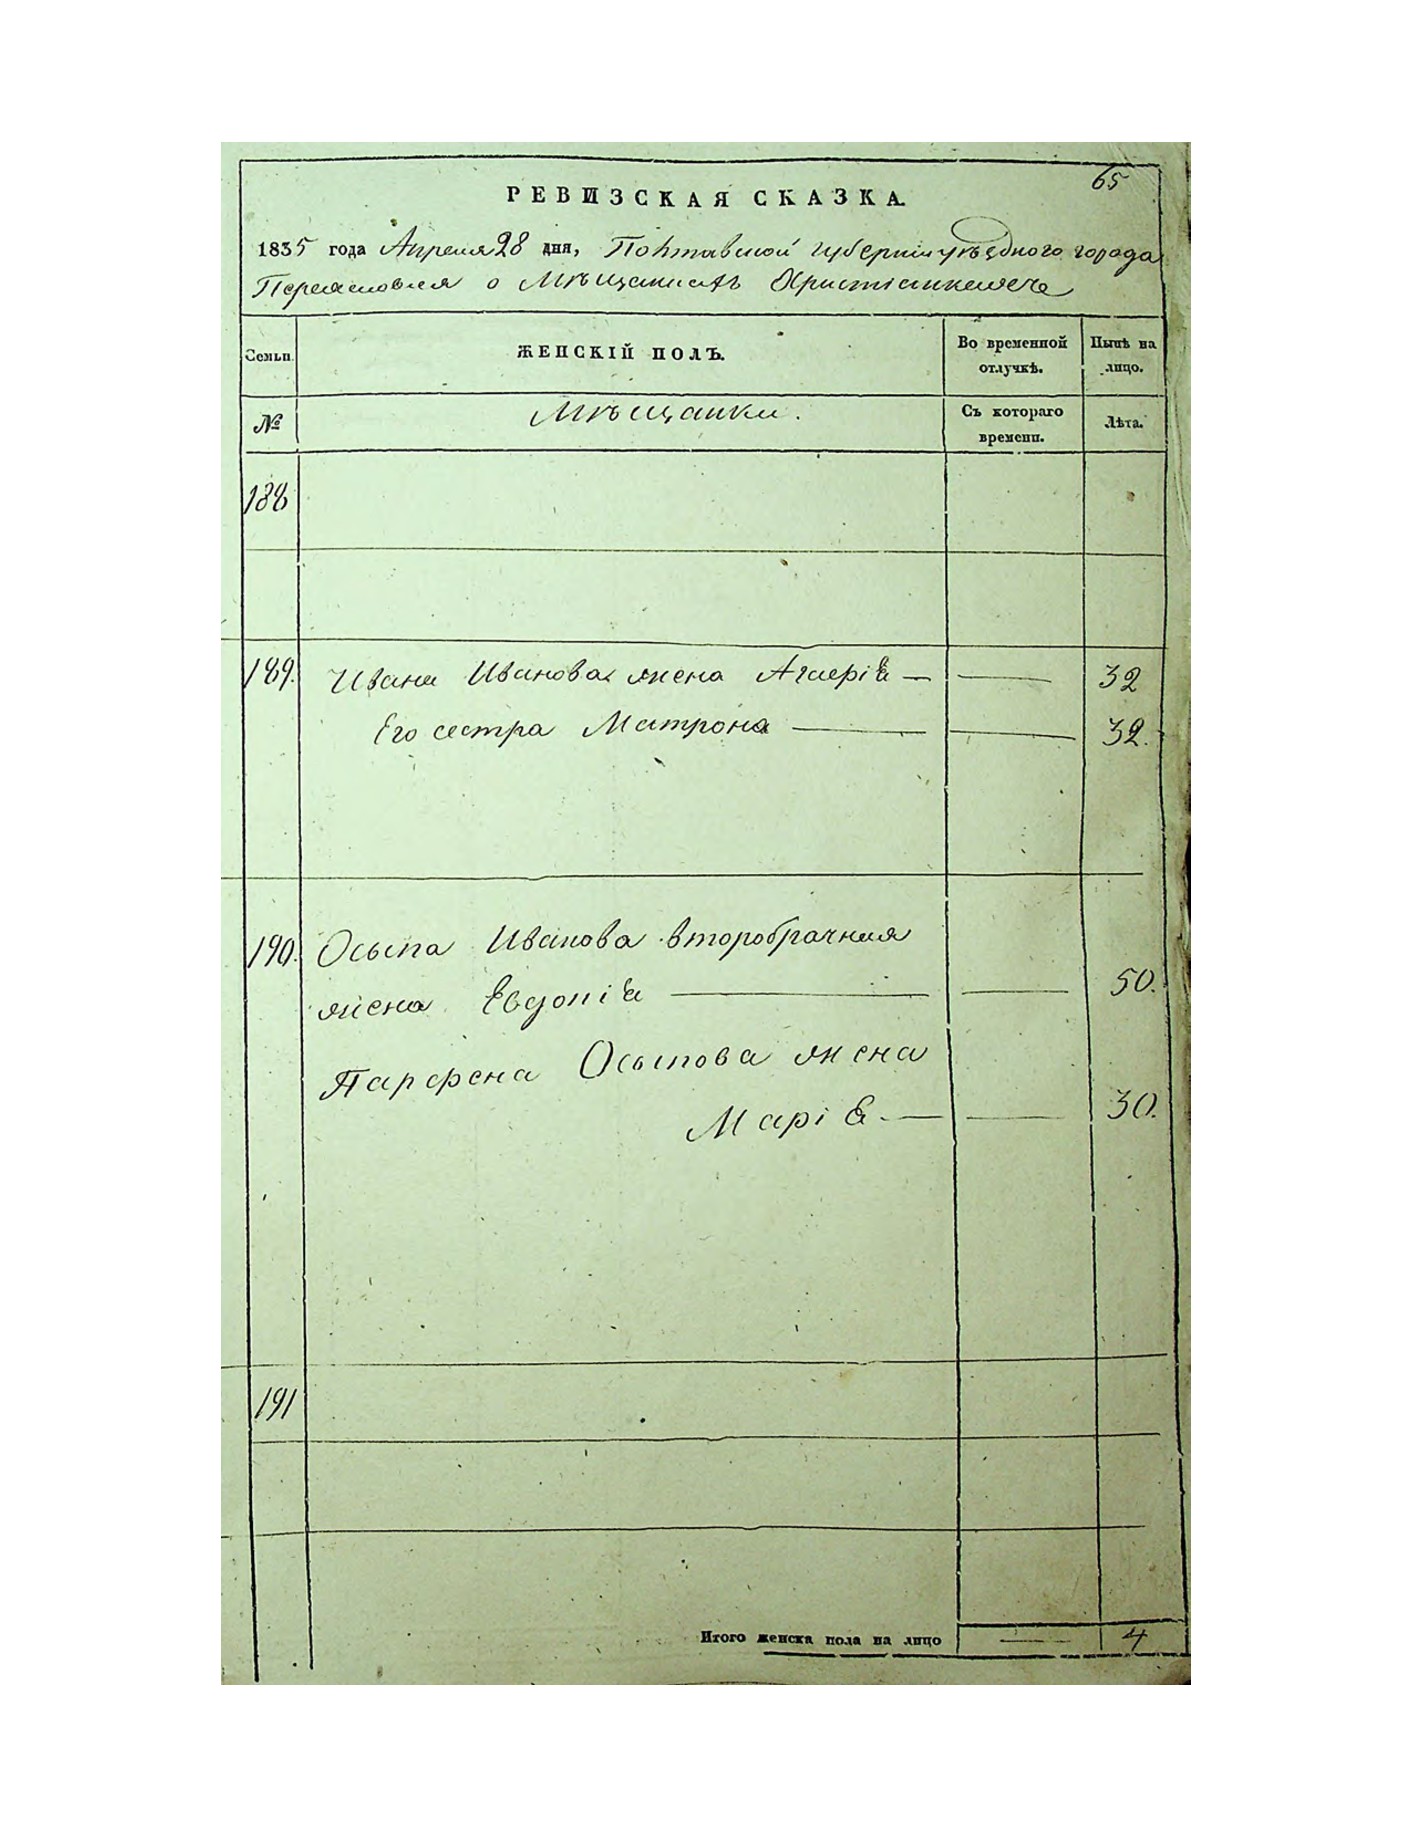 65
РЕВИЗСКАЯ СКАЗКА.
1835 года Апреля 28 дня, Полтавской губерніи уѣздного города
Переяславля о Мѣщанахъ Христіанахъ
Семьи.
ЖЕНСКІЙ ПОЛЪ.
Во временной отлучкѣ.
Нынѣ на лицо.
№
Мѣщанки.
Съ котораго времени.
Лѣта.
188
189. Ивана Иванова жена Агаерія — — 32
Его сестра Матрона — — 32.
190. Осыпа Иванова второбрачная
жена Евдокія — — 50.
Парфена Осыпова жена
Марія — — 30.
191
Итого женска пола на лицо — 4